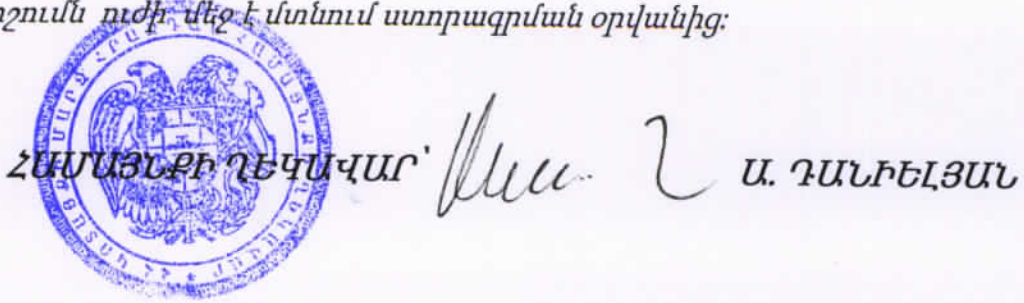 ուժի մեջ է մտնում ստորագրման օրվանից:
ՀԱՄԱՅՆՔԻ ՂԵԿԱՎԱՐ՝ Ա. ԴԱՆԻԵԼՅԱՆ